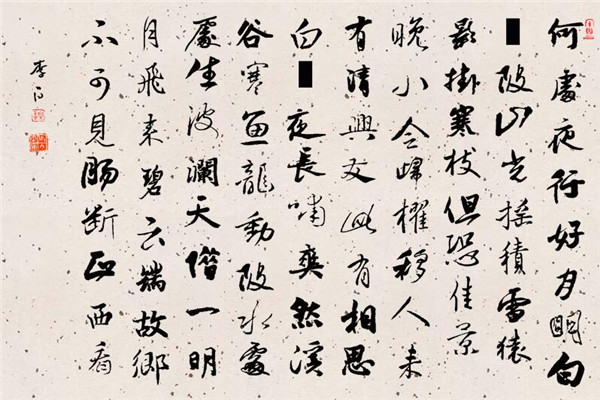 何處夜行好月明白
陂山光摇積雪猿
影掛寒枝但恐佳景
晚小令歸櫂移人来
有清興及此有相思
白夜長嘯爽然溪
谷寒魚龍動陂水處
處生波瀾天借一明
月飛来碧云端故鄉
不可見腸斷正西看
李